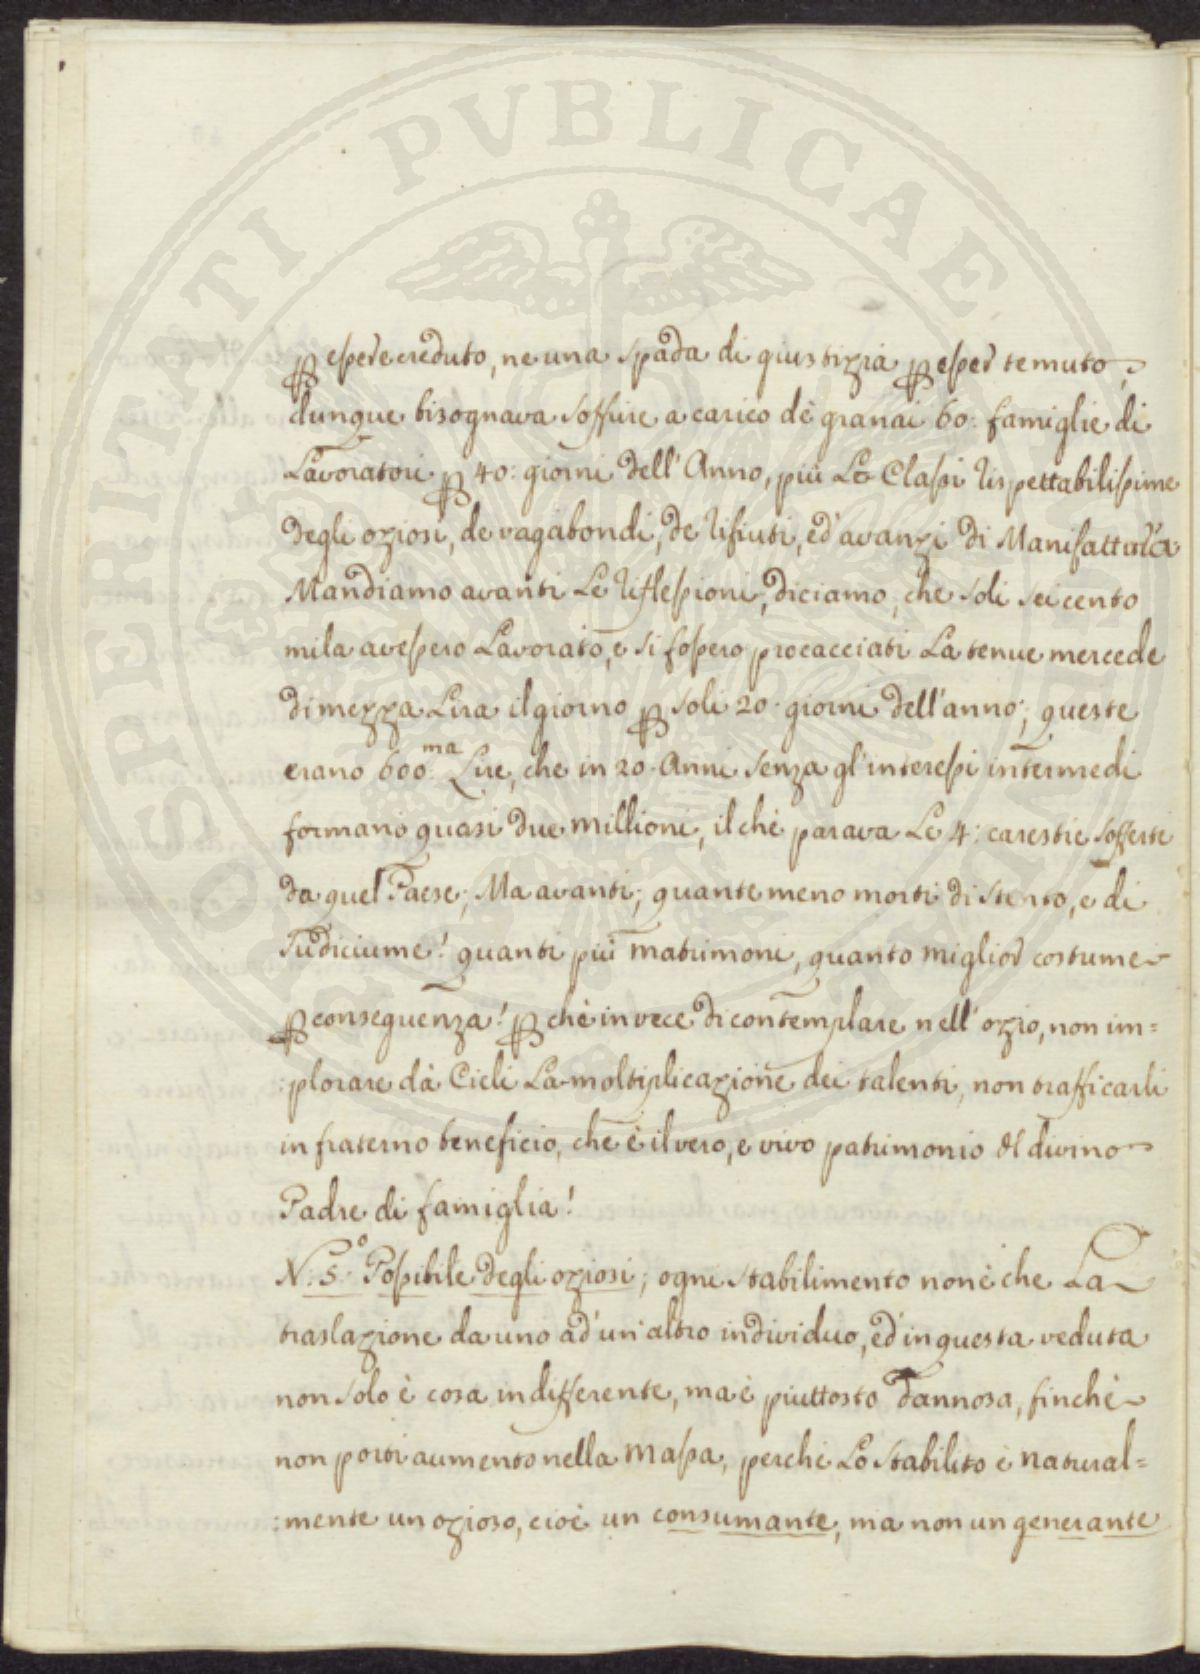 PROSPERITATI PVBLICAE AVGENDAE
ꝑ essere creduto, ne una spada di giustizia ꝑ esser temuto,
dunque bisognava soffrire a carico dè granai 60: famiglie di
Lavoratori ꝑ 40: giorni dell'Anno, più Le Classi rispettabilissime
degli oziosi, de vagabondi, de rifiuti, ed'avanzi di Manifattura
Mandiamo avanti Le riflessioni, diciamo, che soli seicento
mila avessero Lavorato, e si fossero procacciati La tenue mercede
di mezza Lira il giorno ꝑ soli 20. giorni dell'anno; queste
erano 600.ma Lire, che in 20. Anni senza gl'interessi intermedi
formano quasi due millioni, il chè parava Le 4: carestie sofferte
da quel Paese; Ma avanti; quante meno morti di stento, e di
sudiciume! quanti più matrimoni, quanto miglior costume
ꝑ conseguenza! ꝑchè invece di contemplare nell'ozio, non im=
:plorare dà Cieli La moltiplicazione dei talenti, non trafficarli
in fraterno beneficio, che è il vero, e vivo patrimonio del divino
Padre di famiglia!
N: 5.o Possibile degli oziosi; ogni stabilimento non è che La
traslazione da uno ad'un'altro individuo, ed'in questa veduta
non solo è cosa indifferente, ma è piuttosto dannosa, finchè
non porti aumento nella massa, perchè Lo stabilito è natural=
:mente un ozioso, cioè un consumante, ma non un generante